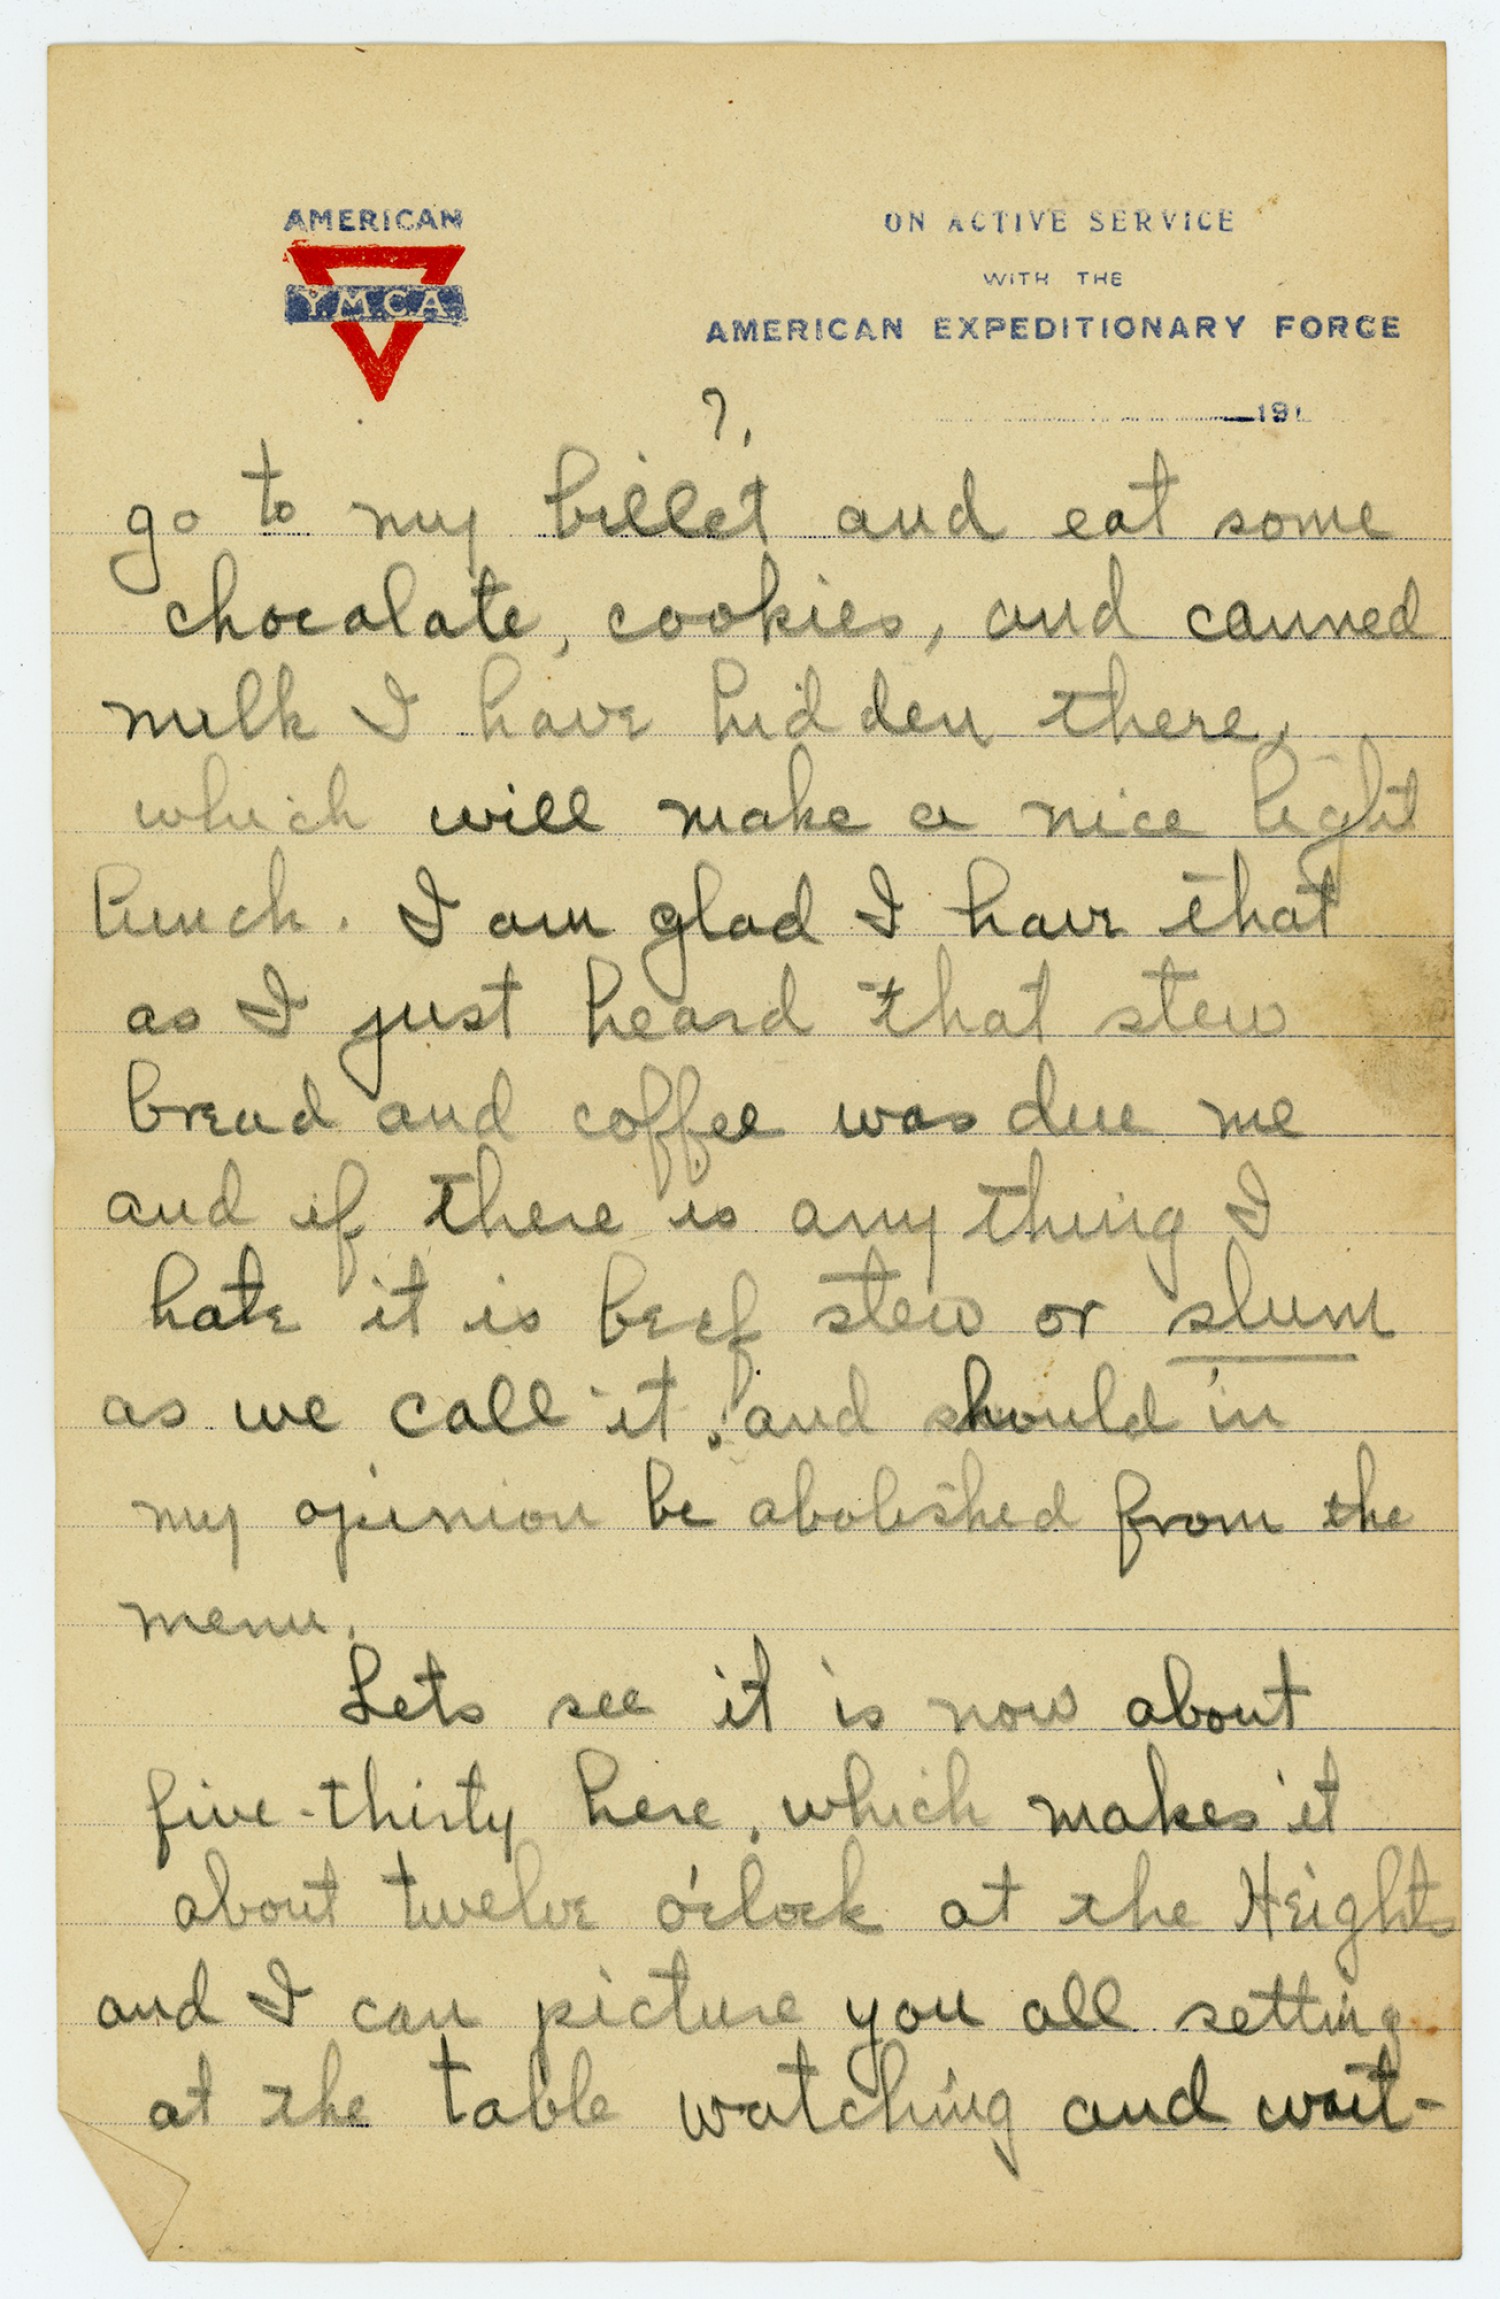 AMERICAN
YMCA
ON ACTIVE SERVICE
WITH THE
AMERICAN EXPEDITIONARY FORCE
191
7.
go to my billet and eat some
chocolate, cookies, and canned
milk I have hidden there,
which will make a nice light
lunch. I am glad I have that
as I just heard that stew
bread and coffee was due me
and if there is any thing I
hate it is beef stew or slum
as we call it, and should in
my opinion be abolished from the
menu.
Lets see it is now about
five-thirty here, which makes it
about twelve o'clock at the Heights
and I can picture you all setting
at the table watching and wait-